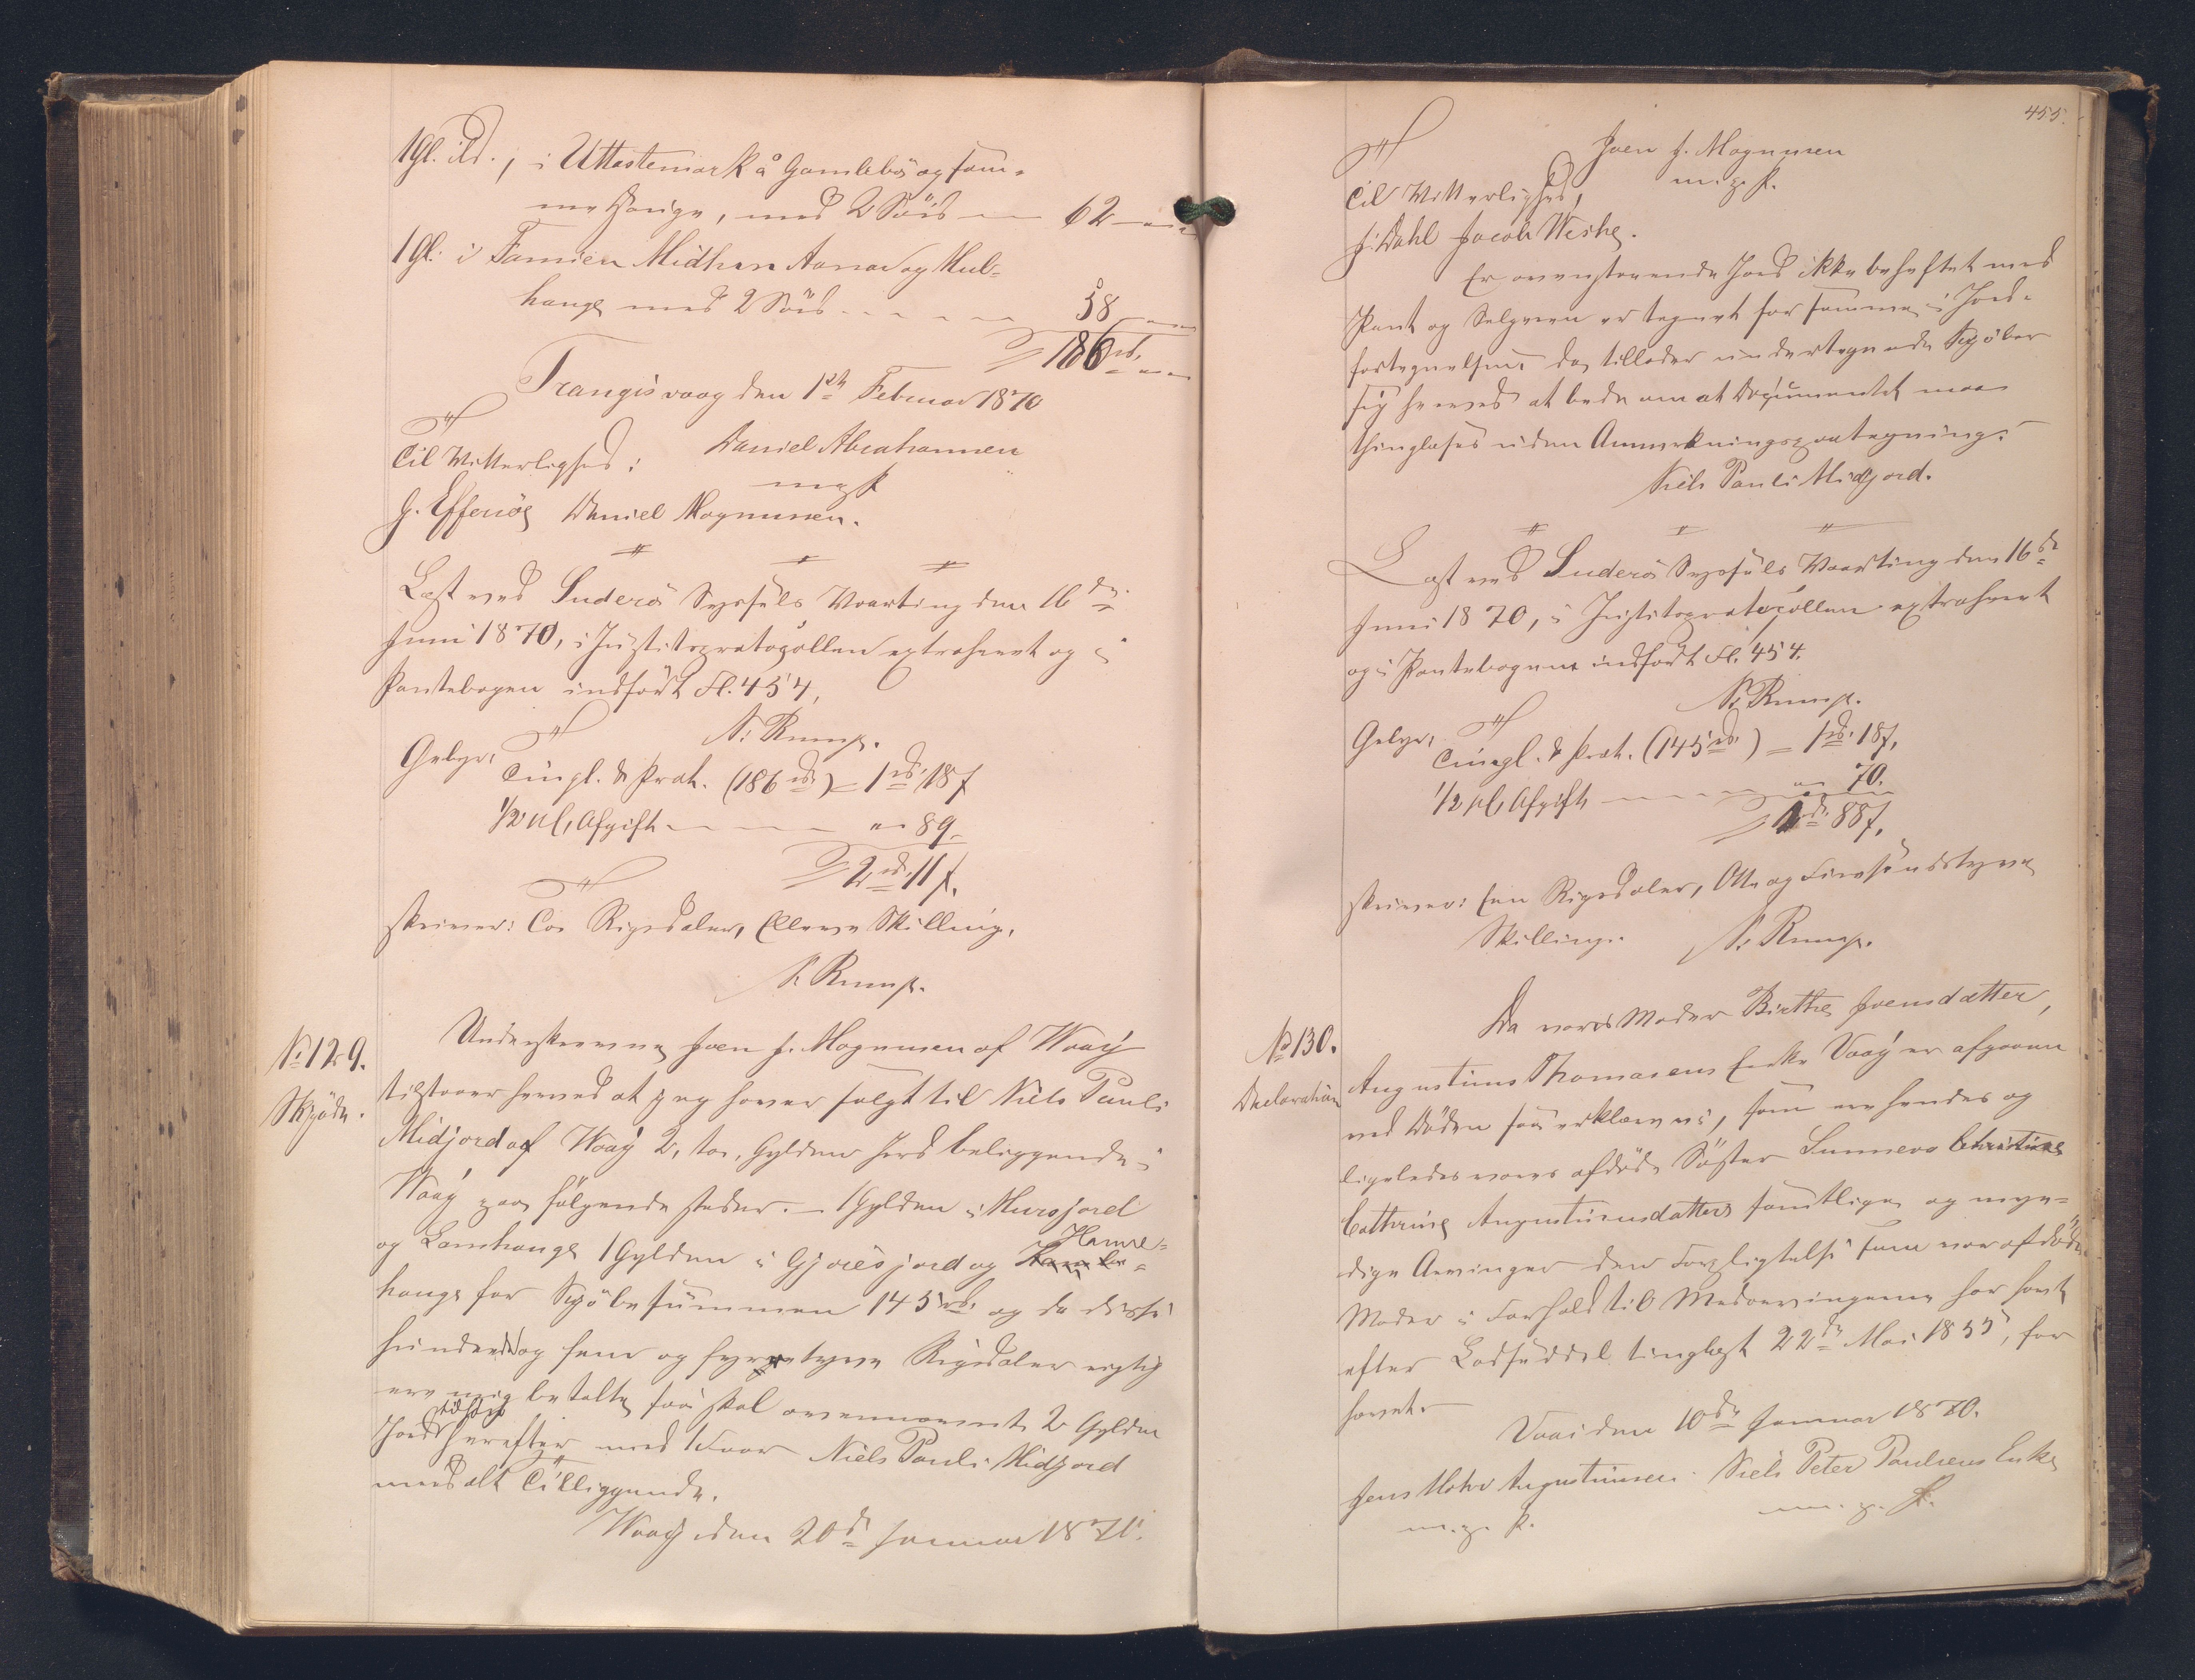 1 Gl. ibd., i Uttastemark å Gamlebö og sam-
me Hauge, med 2 Söid — 62 —
1 Gl. i Tamien Midhen Aanad og Mul-
hauge med 2 Söid — — — 58 —
186 rd. —
Trangisvaag den 1ste Februar 1870
Daniel Abrahamsen
Til Vitterlighed:
m. p.
J. Effersöe Daniel Magnussen.
Læst ved Suderö Syssels Vaarting den 16de
Juni 1870, i Justitsprotocollen extraheret og i
Pantebogen indfört Fl. 454.
N. Rump.
Gebyr,
Tingl. & Prot. (186 rd) = 1 rd. 18 f
1/2 pCt. Afgift — — — " 89
2 rd. 11 f.
skriver: To Rigsdaler, Elleve Skilling.
N. Rump.
No 129.
Skjöde.
Underskrevne Joen J. Magnusen af Waaÿ
tilstaaer herved at jeg haver solgt til Niels Pauli
Midjord af Waaÿ 2, to, Gylden Jord beliggende i
Waaÿ paa fölgende steder. — 1 Gylden i Mursjord
og Lamhauge 1 Gylden i Gjoresjord og Hamre-
hauge for Kjöbesummen 145 rd. og da disse
hundrede og fem og fyrretyve Rigsdaler rigtig
ere mig betalte saa skal ovennævnte 2 Gylden
Jord tilhöre herefter med 1 Faar Niels Pauli Midjord
med alt Tilliggende.
Waaÿ den 20de Januar 1870.
455.
Joen J. Magnusen
m. p.
Til Vitterlighed,
J. Dahl Jacob Weihe.
Er ovenstaaende Jord ikke beheftet med
Pant og Sælgeren er tegnet for samme i Jord-
fortegnelsen, da tillader undertegnede Kjöber
sig herved at bede om at Documentet maa
thinglæses uden Anmærkningspaategning.
Niels Pauli Midjord.
Læst ved Suderö Syssels Vaarting den 16de
Juni 1870, i Justitsprotocollen extraheret
og i Pantebogen indfört Fl. 454.
N. Rump.
Gebyr,
Tingl. & Prot. (145 rd.) = 1 rd. 18 f.
1/2 pCt. Afgift — — — " 70.
1 rd. 88 f.
skriver: Een Rigsdaler, Otte og Fiirsindstyve
Skilling. N. Rump.
No 130.
Declaration
Da vores Moder Birthe Joensdatter,
Augustinus Thomasens Enke Vaaÿ er afgaaen
ved Döden saa erklære vi, som ere hendes og
ligeledes vores afdöde Söster Sunneva Christine
Cathrine Augustinusdatters samtlige og myn-
dige Arvinger den Forpligtelse som vor afdöde
Moder i Forhold til Medarvingerne har havt
efter Lodseddel tinglæst 22de Mai 1855, for
hævet.
Vaai den 10de Januar 1870.
Jens Mohr Augustinusen. Niels Peter Poulsens Enke
m. p. m. p.